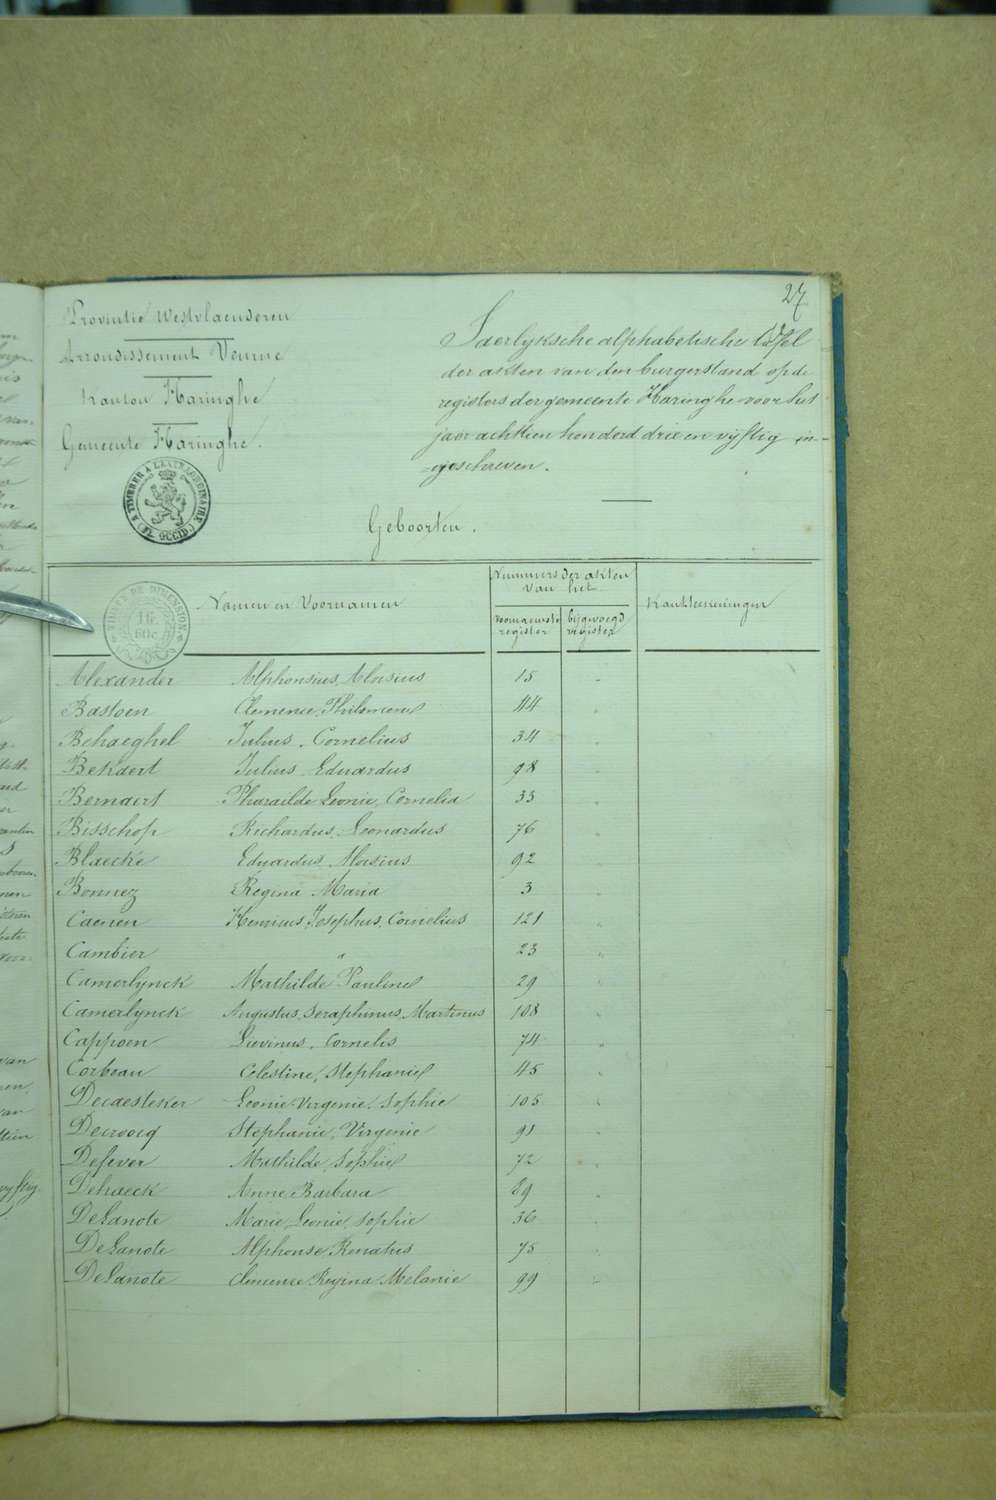 27
Provintie Westvlaenderen
Arrondissement Veurne
Kanton Haringhe
Gemeente Haringhe.
Jaerlyksche alphabetische tafel
der akten van den burgerstand op de
registers der gemeente Haringhe voor het
jaer achttien honderd drie en vyftig in-
-geschreven.
TIMBRER A L'EXTRAORDINAIRE
OCCID
Geboorten.
Namen en Voornamen
Nummers der akten
van het
Kantteekeningen
voornaemste
register
bijgevoegd
register
TIMBRE DE DIMENSION
1 fr.
60 c.
Alexander Alphonsius, Aloisius 15 "
Bastoen Clemence, Philomene 44 "
Behaeghel Julius, Cornelius 34 "
Bekaert Julius Eduardus 98 "
Bernaert Pharailde Leonie, Cornelia 33 "
Bisschop Richardus, Leonardus 76 "
Blaecke Eduardus, Aloisius 92 "
Bonnez Regina Maria 3 "
Caenen Henricus, Josephus, Cornelius 121 "
Cambier " 23 "
Camerlynck Mathilde Pauline 29 "
Camerlynck Augustus, Seraphinus, Martinus 108 "
Cappoen Lievinus, Cornelis 74 "
Corbeau Celestine, Stephanie 45 "
Decaesteker Leonie Virgenie, Sophie 105 "
Decroocq Stephanie, Virgenie 91 "
Defever Mathilde, Sophie 72 "
Dehaeck Anne Barbara 89 "
DeLanote Marie, Leonie, Sophie 36 "
DeLanote Alphonse, Renatus 75 "
DeLanote Clemence, Regina, Melanie 99 "